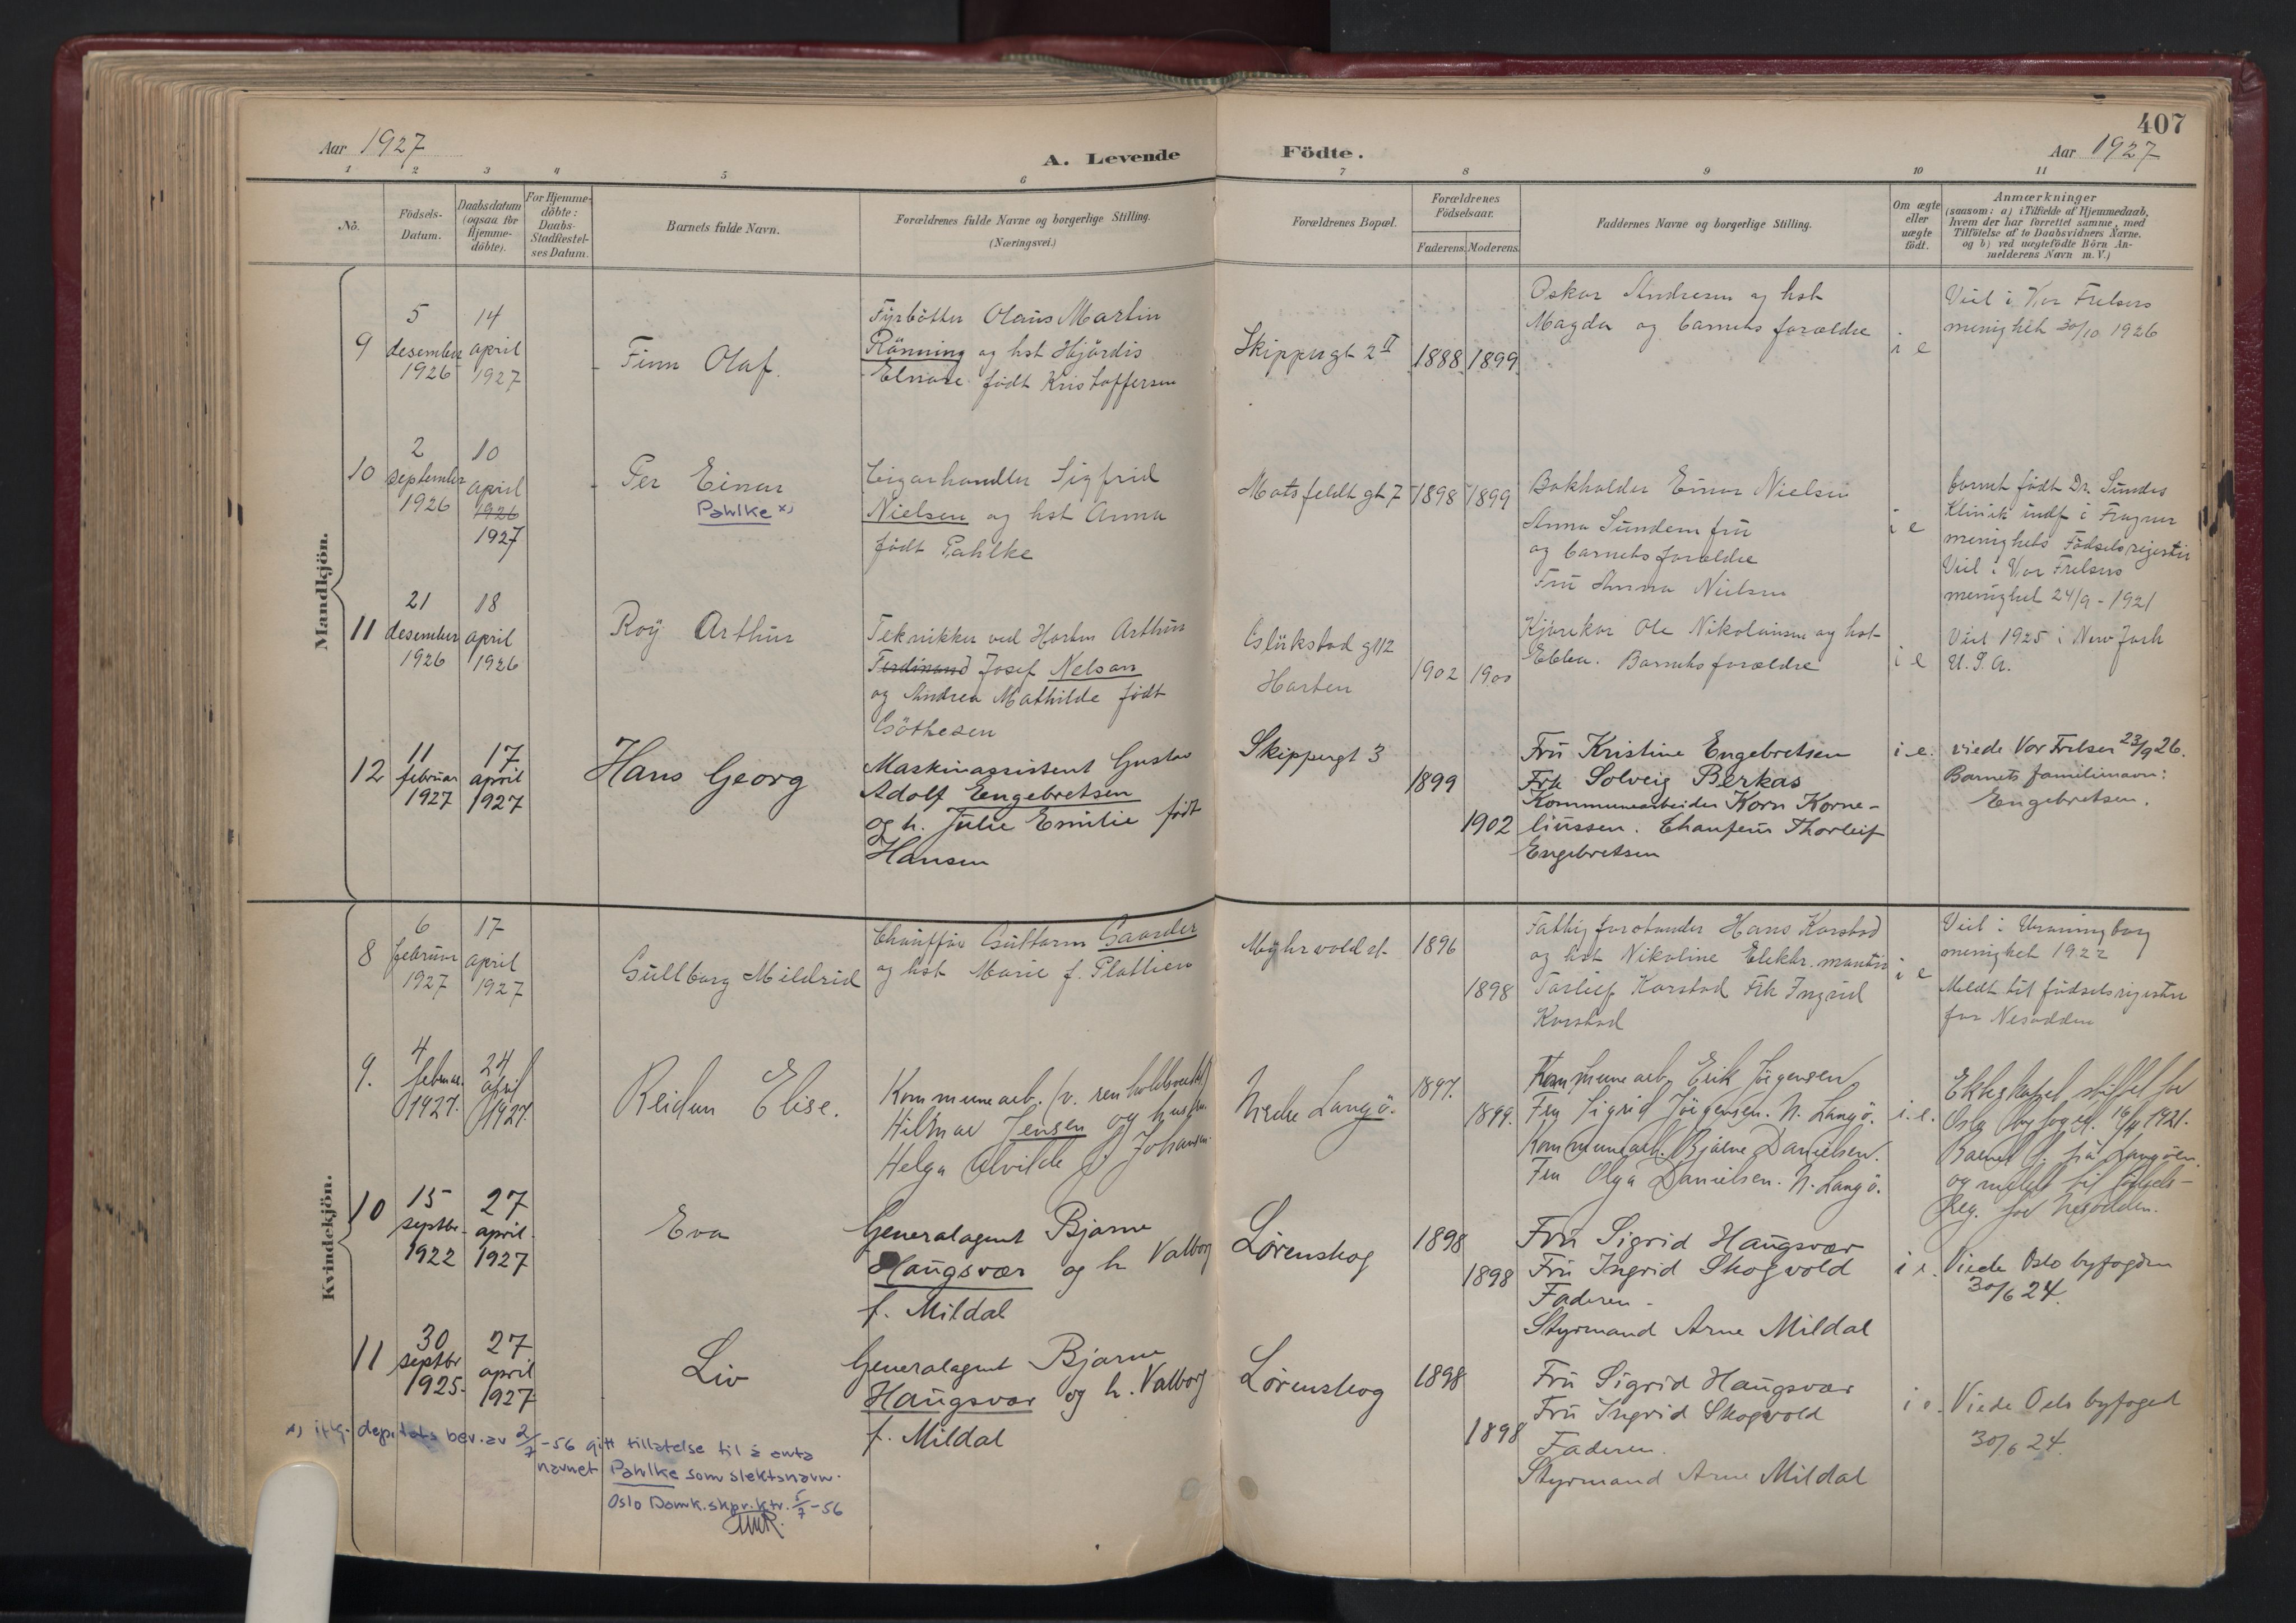 407
Aar 1927
A. Levende
Födte.
Aar 1927
1 2 3 4 5 6 7 8 9 10 11
No.
Födsels-
Datum.
Daabsdatum
(ogsaa for
Hjemme-
döbte).
For Hjemme-
döbte:
Daabs-
Stadfæstel-
ses Datum.
Barnets fulde Navn.
Forældrenes fulde Navne og borgerlige Stilling.
(Næringsvei.)
Forældrenes Bopæl.
Forældrenes
Födselsaar.
Faderens. Moderens.
Faddernes Navne og borgerlige Stilling.
Om ægte
eller
uægte
födt.
Anmærkninger
(saasom: a) i Tilfælde af Hjemmedaab,
hvem der har forrettet samme, med
Tilföielse af to Daabsvidners Navne.
og b) ved uægtefödte Börn An-
melderens Navn m. V.)
Mandkjön.
9
5
desember
1926
14
april
1927
Finn Olaf.
Fyrbötter Olaus Martin
Rönning og hst Hjördis
Elnore födt Kristoffersen
Skippergt 2 II
1888 1899
Oskar Andresen og hst
Magda og barnets forældre
i e
Viet i Vor Frelsers
menighet 30/10 1926
10
2
september
1926
10
april
1926
1927
Per Einar
Pahlke x)
Cigarhandler Sigfrid
Nielsen og hst Anna
födt Pahlke
Motzfeldt gt 7
1898 1899
Bokholder Einar Nielsen
Anna Sundem fru
og barnets forældre
Fru Anna Nielsen
i e
barnet födt Dr. Sundes
Klinik indf i Frogner
menighets Födselsregister
Viet i Vor Frelsers
menighet 24/9 - 1921
11
21
desember
1926
18
april
1926
Roy Arthur
Tekniker ved Horten Arthur
Ferdinand Josef Nelson
og Andrea Mathilde födt
Göthesen
Glükstad gt 12
Horten
1902 1900
Kjörekar Ole Nikolaisen og hst
Ebba. Barnets forældre
i e
Viet 1925 i New York
U.S.A.
12
11
februar
1927
17
april
1927
Hans Georg
Maskinassistent Gustav
Adolf Engebretsen
og h. Julie Emilie født
Hansen
Skippergt 3
1899
1902
Fru Kristine Engebretsen
Frk Solveig Berkas
Kommunearbeider Korn Korne-
liussen. Chaufeur Thorleif
Engebretsen
i e.
viede Vor Frelser 23/9 26.
Barnets familienavn:
Engebretsen.
Kvindekjön.
8
6
februar
1927
17
april
1927
Gullborg Mildrid
Chauffør Guttorm Gaarder
og hst Marie f. Plattien
Myhrvold st.
1896
1898
Fattigforstander Hans Korstad
og hst Nikoline Elektr. montør
Torleif Korstad Frk Ingrid
Korstad
i e
Viet i Uranienborg
menighet 1922
Meldt til födselsregistret
for Nesodden
9.
4
februar.
1927.
24
april
1927.
Reidun Elise.
Kommunearb. (v. renholdsverket)
Hilmar Jensen og hustru
Helga Alvilde f. Johansen.
Nedre Langö.
1897.
1899.
Kommunearb. Erik Jörgensen
Fru Sigrid Jörgensen. N. Langö.
Kommunearb. Bjarne Danielsen.
Fru Olga Danielsen. N. Langö.
i. e.
Ekteskapet stiftet hos
Oslo byfoged. 16/4 1921.
Barnet f. på Langöen
og meldt til fødsels-
Reg. for Nesodden.
10
15
septbr.
1922
27
april
1927
Eva
Generalagent Bjarne
Haugsvær og h Valborg
f. Mildal
Lørenskog
1898
1898
Fru Sigrid Haugsvær
Fru Ingrid Skogvold
Faderen -
Styrmand Arne Mildal
i e.
Viede Oslo byfogden
30/6 24.
11
30
septbr
1925
27
april
1927
Liv
Generalagent Bjarne
Haugsvær og h. Valborg
f. Mildal
Lørenskog
1898
1898
Fru Sigrid Haugsvær
Fru Ingrid Skogvold
Faderen.
Styrmand Arne Mildal
i e.
Viede Oslo byfoged
30/6 24.
x) iflg. depi.tets bev. av 2/7 -56 gitt tillatelse til å anta
navnet Pahlke som slektsnavn.
Oslo Domk. skpr. ktr. 5/7 -56